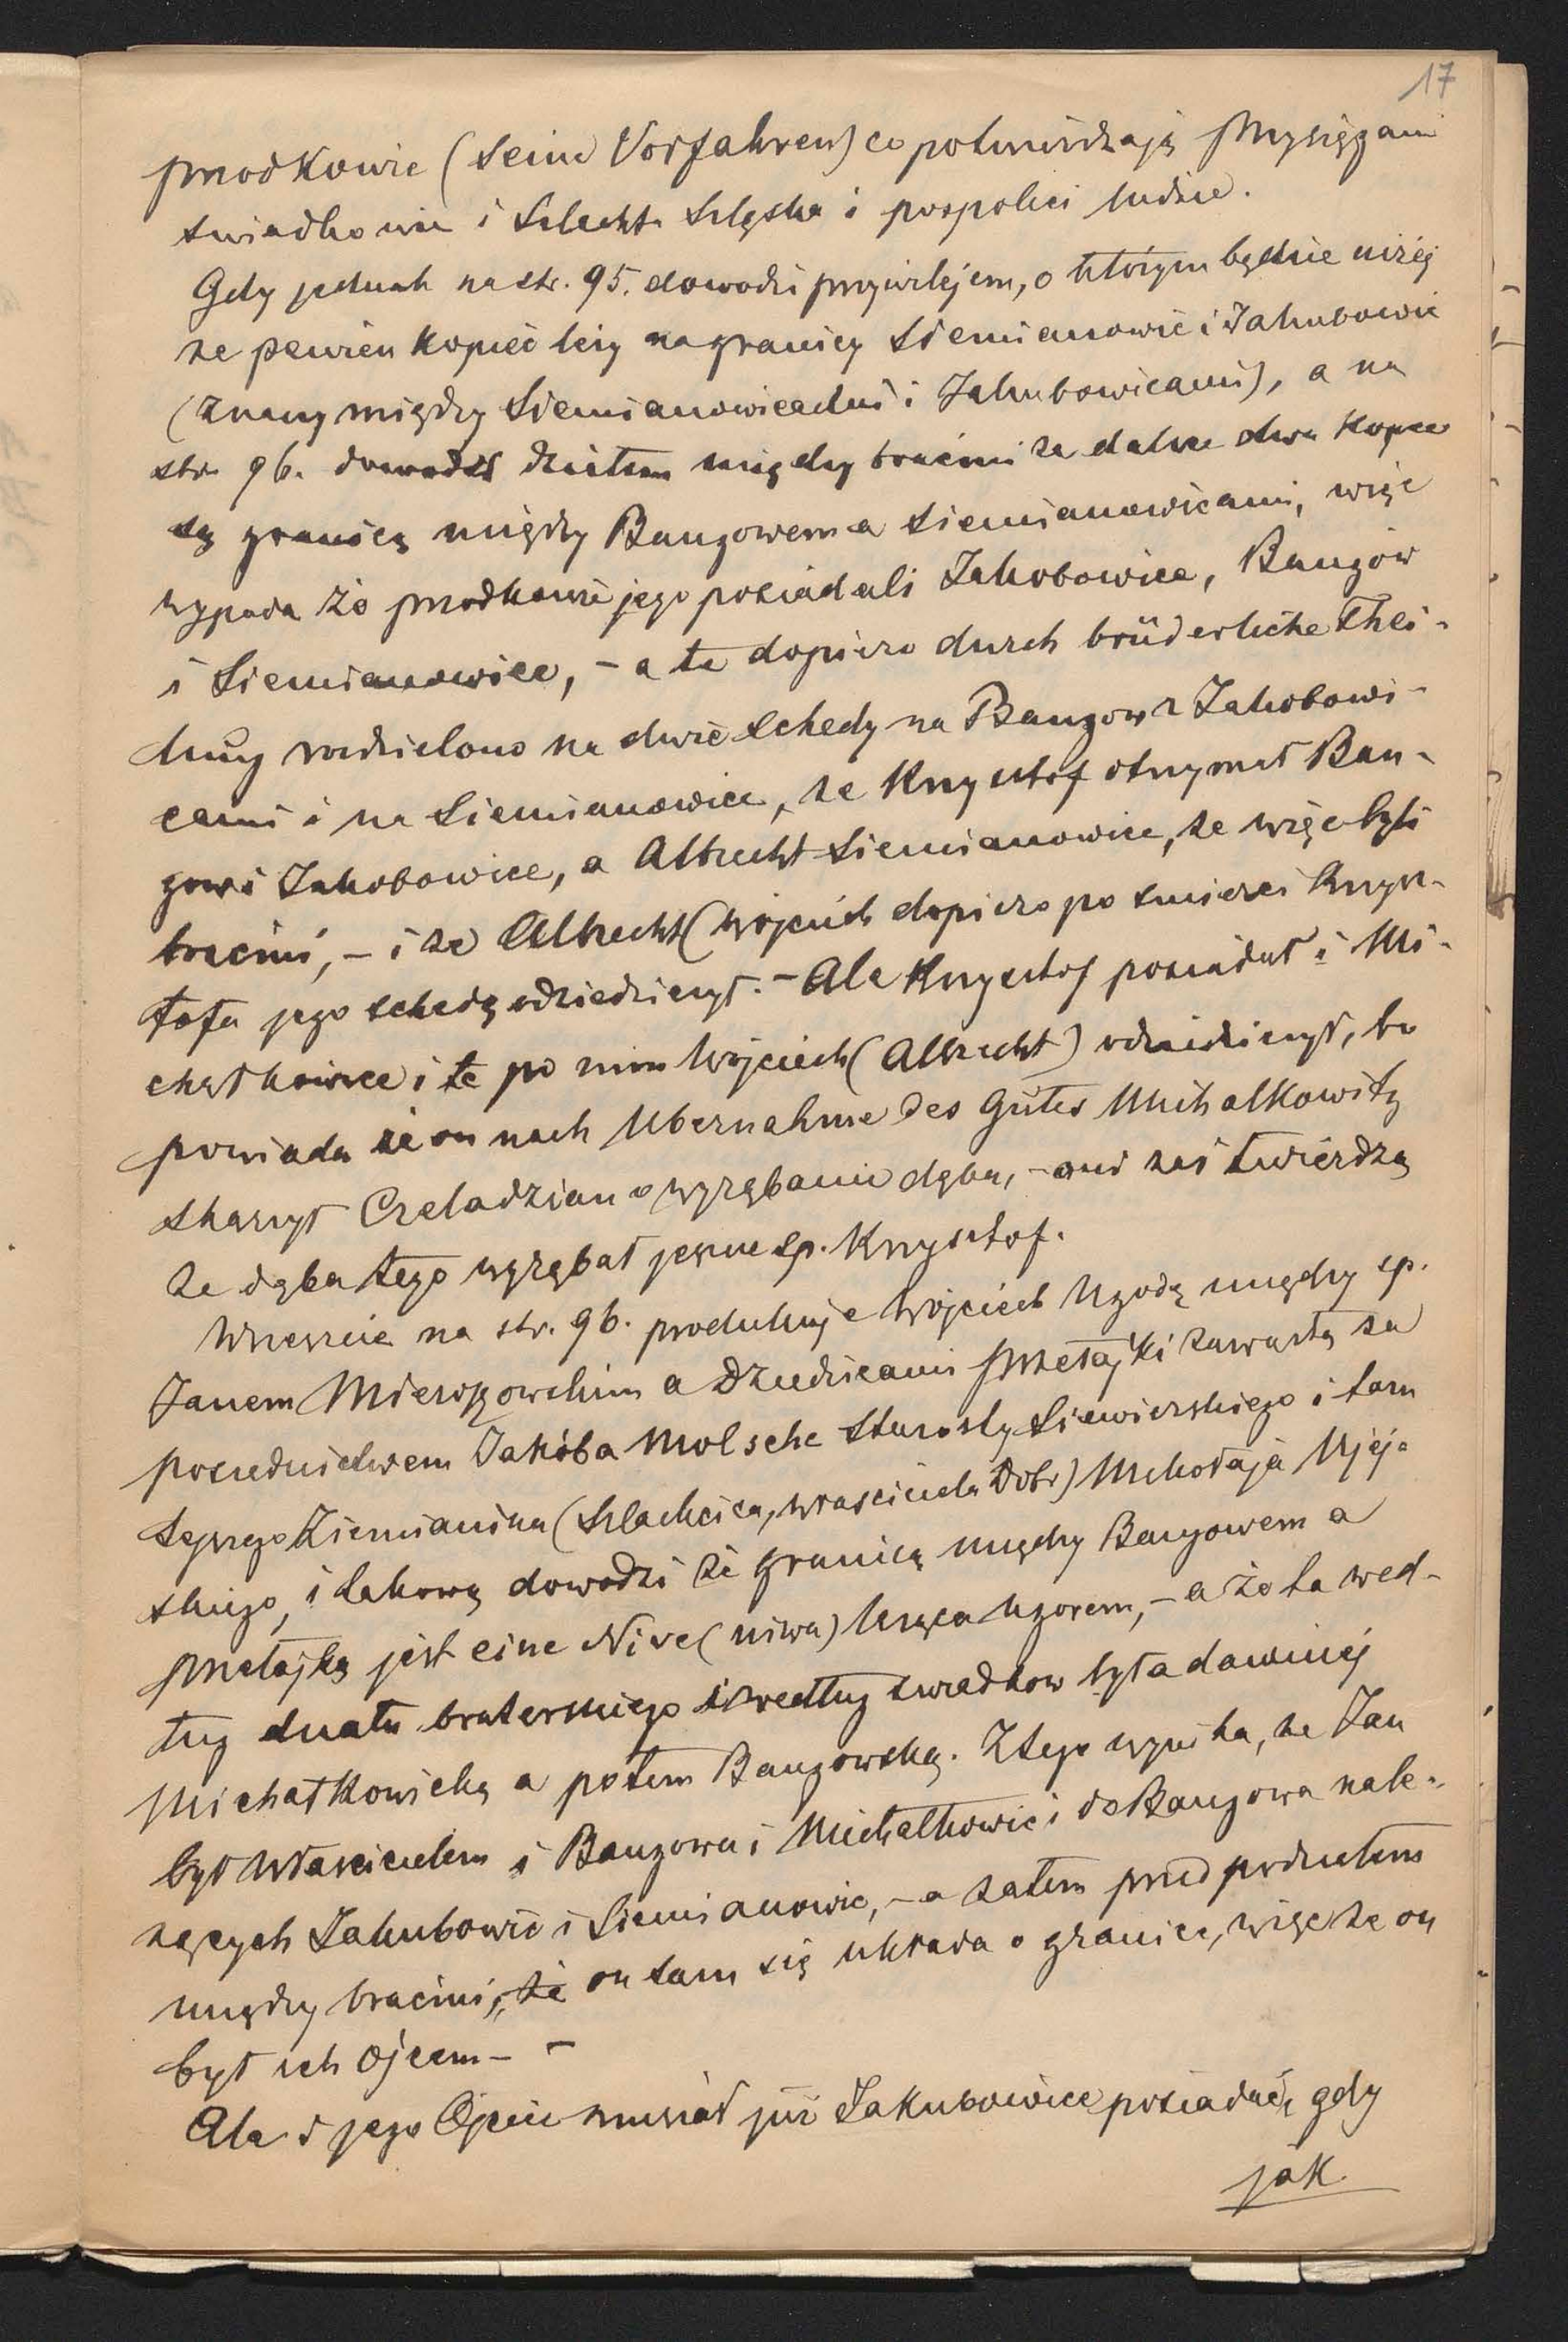 17
przodkowie (seine Vorfahren) co potwierdzają przysięgami
świadkowie i Szlachta Szlązka i pospolici ludzie.
Gdy jednak na str. 95. dowodzi przywilejem, o którym będzie niżej
że pewien kopiec leży na granicy Siemianowic i Jakubowic
(znany między Siemianowicami i Jakubowicami), a na
str. 96. dowodzi działem między braćmi że dalsze dwa kopce
są granicą między Bangowem a Siemianowicami, więc
wypada że przodkowie jego posiadali Jakobowice, Bangów
i Siemianowice, – a te dopiero durch brüderliche Thei-
lung rozdzielono na dwie schedy na Bangow z Jakobowi-
cami i na Siemianowice, że Krzysztof otrzymał Ban-
gow i Jakobowice, a Albrecht Siemianowice, że więc byli
braćmi, – i że Albrecht (Wojciech dopiero po śmierci Krzysz-
tofa jego schedę odziedziczył. – Ale Krzysztof posiadał i Mi-
chałkowice i te po nim Wojciech (Albrecht) odziedziczył, bo
powiada że on nach Ubernahme des Gutes Michalkowitz
skarżył Czeladzian o wyrąbanie dęba, – oni zaś twierdzą
że dęba tego wyrąbał jeszcze śp. Krzysztof.
Wreszcie na str. 96. produkuje Wojciech Ugodę między śp.
Janem Mieroszowskim a Dziedzicami Przełajki zawartą za
pośrednictwem Jakóba Molsche Starosty Siewierskiego i tam
tejszego Ziemianina (Szlachcica, właściciela Dobr) Mikołaja Ujej-
skiego, i takową dowodzi że granicą między Bangowem a
Przełajką jest eine Nive (niwa) Ugorem, – a że ta wed-
ług działu braterskiego i według świadkow była dawniej
Michałkowicką a potem Bangowską. Z tego wynika, że Jan
był właścicielem i Bangowa i Michałkowic i do Bangowa nale-
żących Jakubowic i Siemianowic, – a zatem przed podziałem
między braćmi, że on sam się układa o granice, więc że on
był ich Ojcem – –
Ale i jego Ojciec musiał już Jakubowice posiadać, gdy
jak